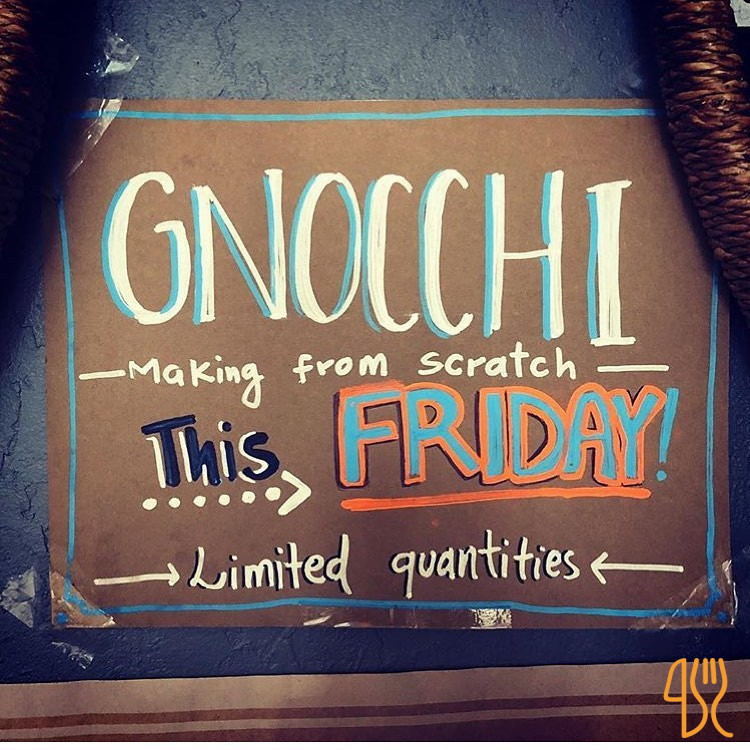 GNOCCHI
Making from scratch
This FRIDAY!
Limited quantities